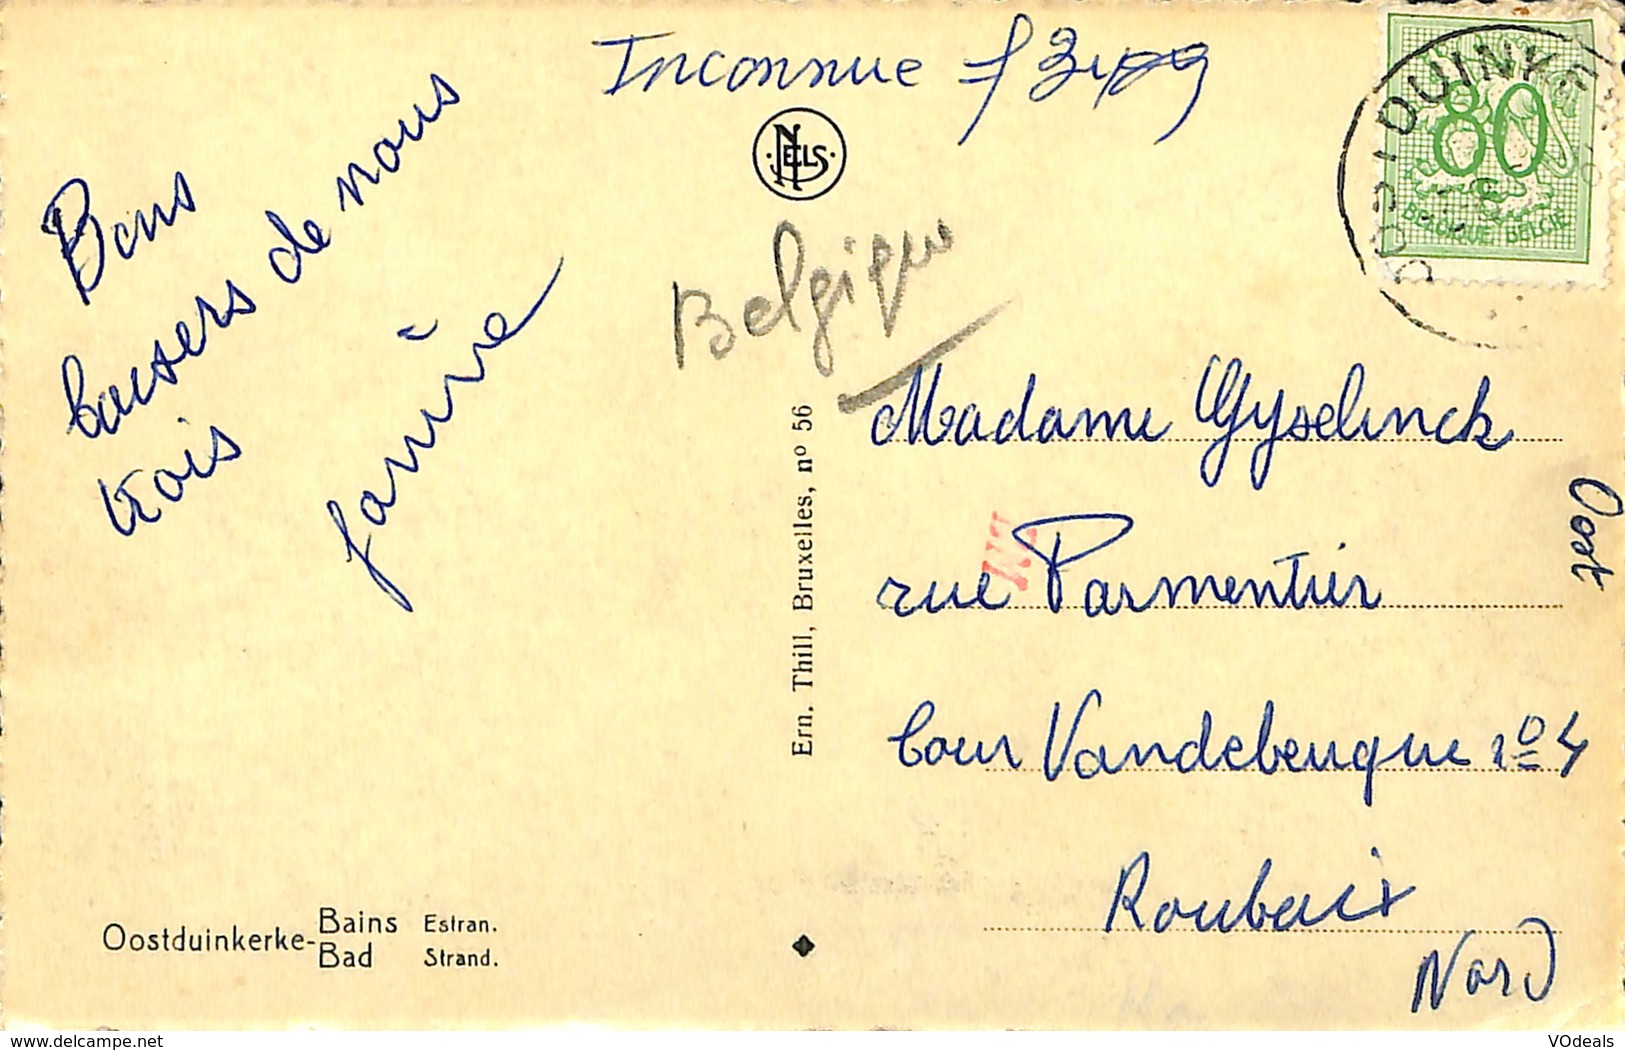 Inconnue
NELS
80
BELGIQUE BELGIË
Bons
baisers de nous
trois
Belgique
Madame Gyselinck
rue Parmentier
Cour Vandebeuque nº 4
Roubaix
Nord
Oost
Ern. Thill, Bruxelles, nº 56
Oostduinkerke-Bains Estran.
Bad Strand.
delcampe.net
VOdeals